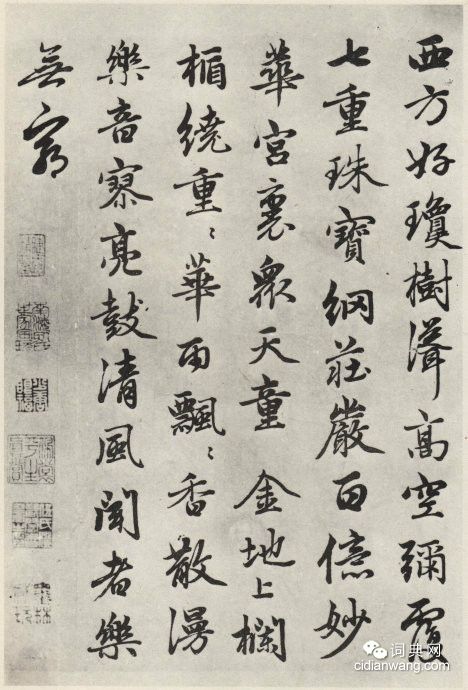 西方好瓊樹聳高空彌覆
七重珠寶網莊嚴百億妙
華宮裏眾天童 金地上欄
楯繞重〻華雨飄〻香散漫
樂音寥亮鼓清風聞者樂
無窮
词典网
cidianwang.com